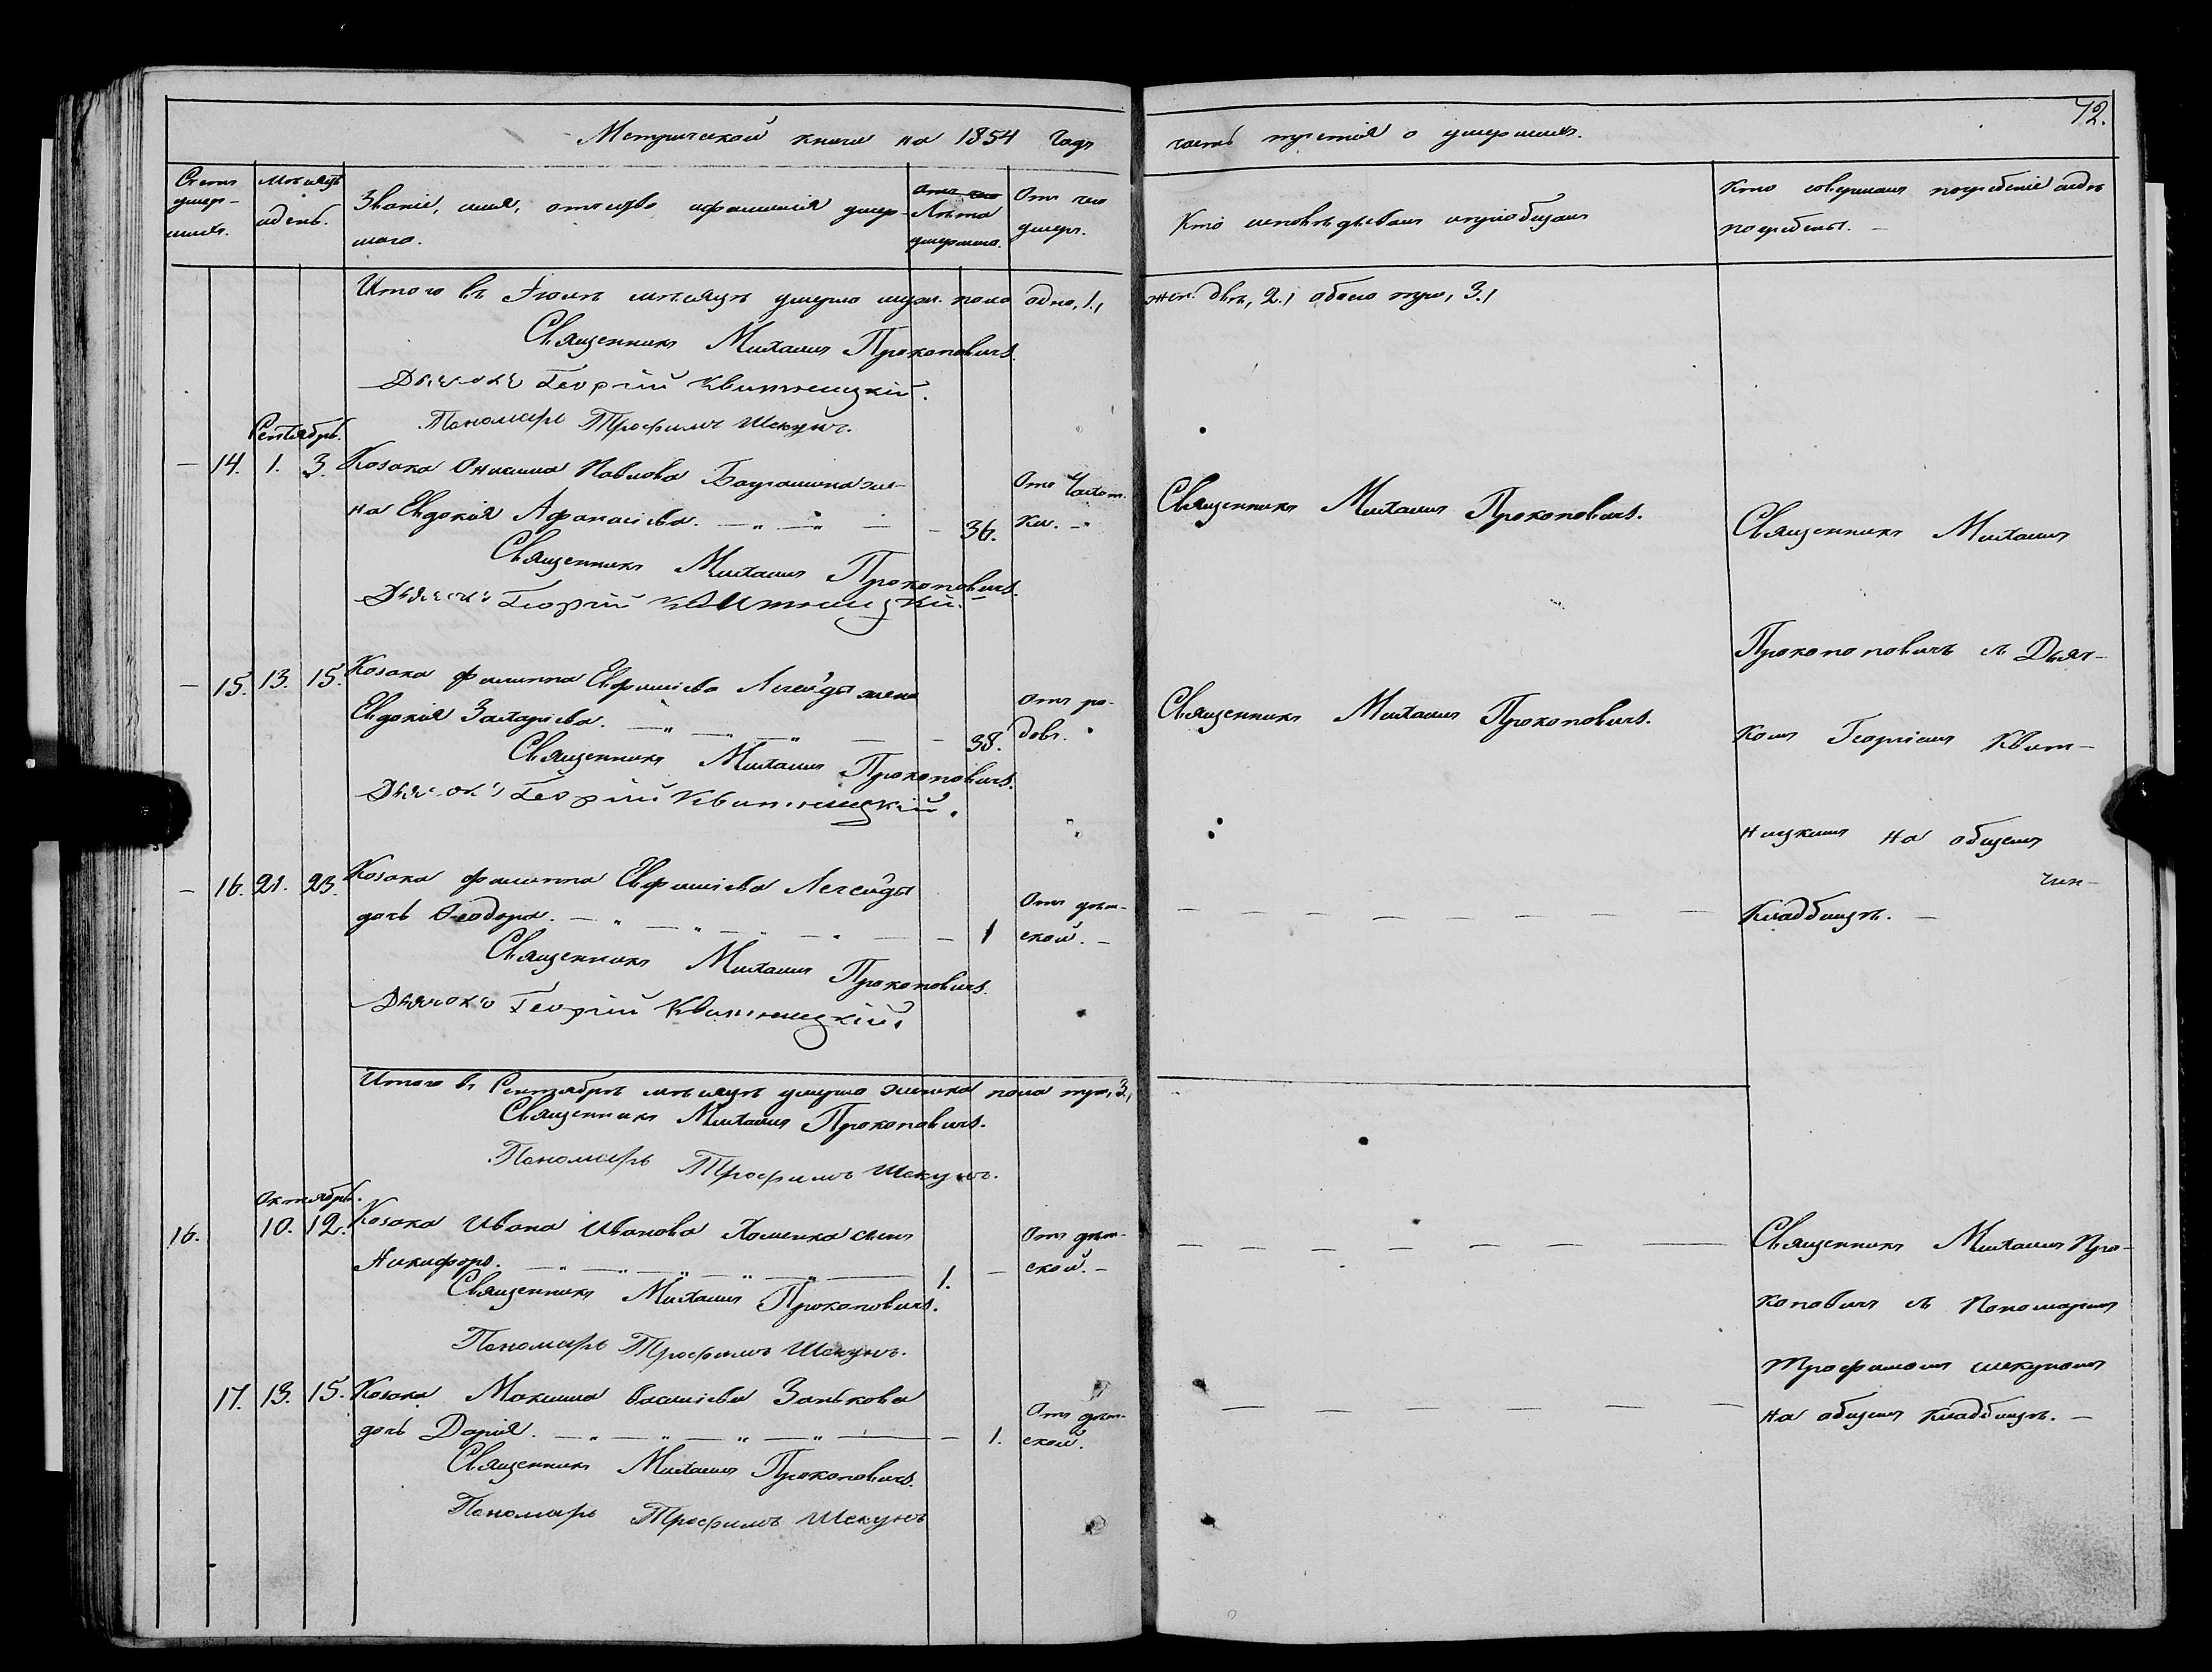 Метрической книги на 1854 годъ
часть третія о умершихъ.
72.
Счетъ умер-
шихъ.
Мѣсяцъ
и день.
Званіе, имя, отчество и фамилія умер-
шаго.
Лѣта
умершаго.
Отъ чего
умеръ.
Кто исповѣдывалъ и пріобщалъ
Кто совершалъ погребеніе и гдѣ
погребены. —
Итого въ Іюлѣ мѣсяцѣ умерло муж. пола одно, 1.,
жен. двѣ, 2., обоего три, 3.,
Священникъ Михаилъ Прокоповичъ.
Дьячокъ Георгій Квитницкій.
Пономарь Трофимъ Шекунъ.
Сентябрь.
— 14. 1. 3. Козака Онисима Павлова же-
на Евдокія Афанасіева. — 36.
Отъ Чахот-
ки. —
Священникъ Михаилъ Прокоповичъ.
Священникъ Михаилъ
Священникъ Михаилъ Прокоповичъ.
Дьячокъ Георгій Квитницкій.
Прокоповичъ съ Дьяч-
— 15. 13. 15. Козака Филиппа Евфиміева Легейды жена
Евдокія Захаріева. — 38.
Отъ ро-
довъ.
Священникъ Михаилъ Прокоповичъ.
комъ Георгіемъ Квит-
Священникъ Михаилъ Прокоповичъ.
Дьячокъ Георгій Квитницкій.
ницкимъ на общемъ
— 16. 21. 23. Козака Филиппа Евфиміева Легейды
дочь Феодора. — 1
Отъ дѣт-
ской. —
кладбищѣ. —
Священникъ Михаилъ Прокоповичъ.
Дьячокъ Георгій Квитницкій.
Итого въ Сентябрѣ мѣсяцѣ умерло женска пола три, 3.,
Священникъ Михаилъ Прокоповичъ.
Пономарь Трофимъ Шекунъ.
Октябрь.
16. 10. 12. Козака Ивана Иванова Хоменка сынъ
Никифоръ. — 1. —
Отъ дѣт-
ской. —
Священникъ Михаилъ Про-
Священникъ Михаилъ Прокоповичъ.
коповичъ съ Пономаремъ
Пономарь Трофимъ Шекунъ.
Трофимомъ Шекуномъ
17. 13. 15. Козака Максима Василіева Занькова
дочь Дарія. — 1.
Отъ дѣт-
ской.
на общемъ кладбищѣ. —
Священникъ Михаилъ Прокоповичъ.
Пономарь Трофимъ Шекунъ